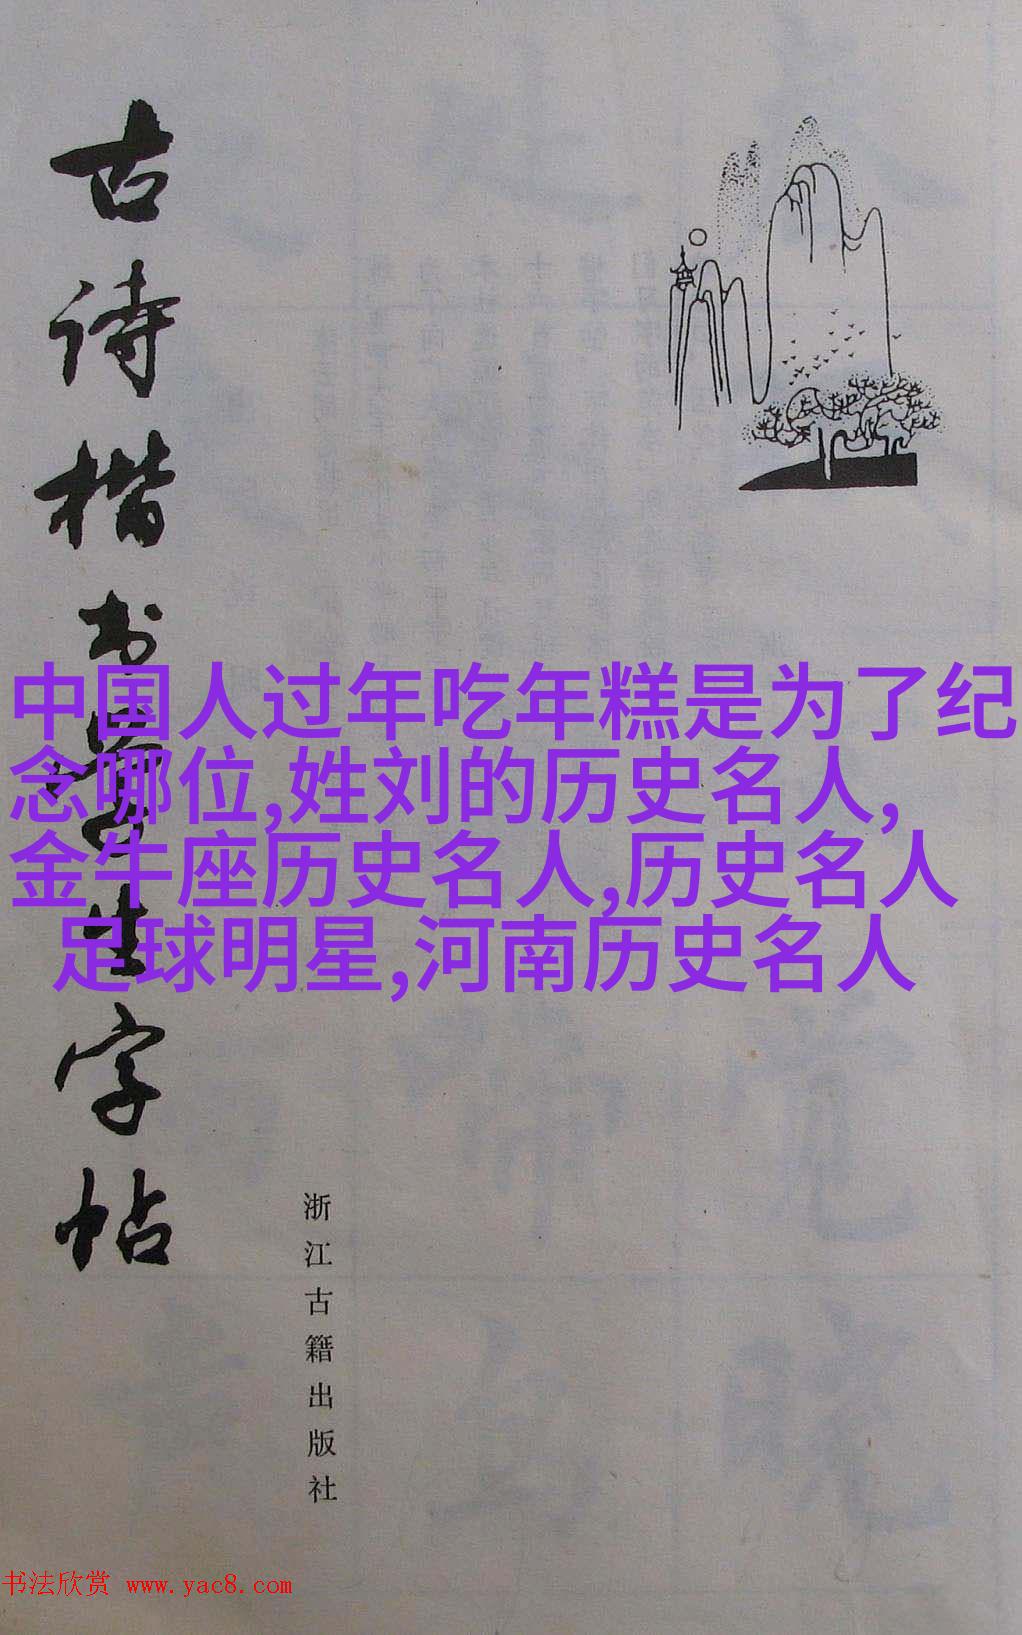 古诗楷书写生字帖
中国人过年吃年糕是为了纪
念哪位,姓刘的历史名人,
金牛座历史名人,历史名人
足球明星,河南历史名人
浙江古籍出版社
书法欣赏 www.yac8.com